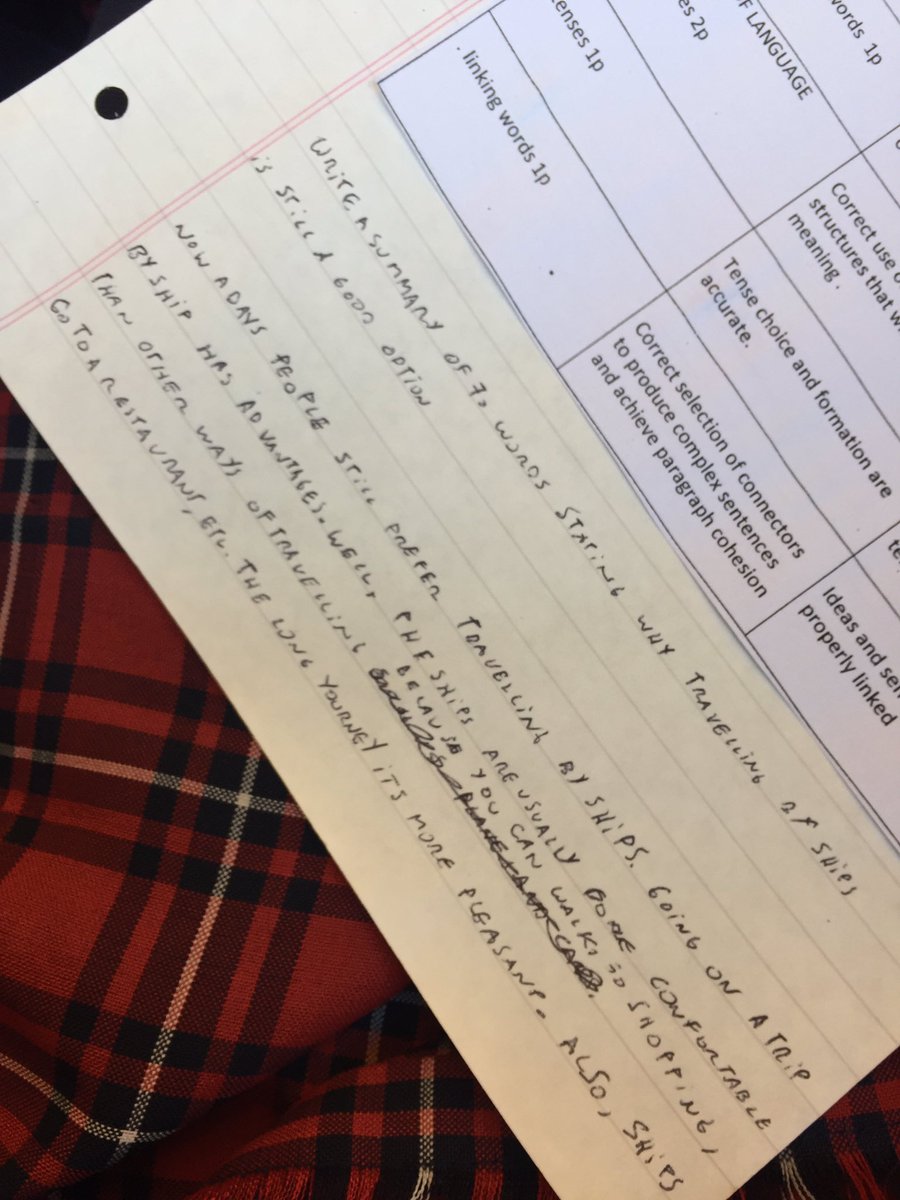 words 1p
es 2p
F LANGUAGE
Correct use o
structures that w
meaning.
enses 1p
Tense choice and formation are
accurate.
te
. linking words 1p
Correct selection of connectors
to produce complex sentences
and achieve paragraph cohesion
Ideas and sen
properly linked
WRITE A SUMMARY OF 70 WORDS STATING WHY TRAVELLING BY SHIPS
IS STILL A GOOD OPTION
NOW A DAYS PEOPLE STILL PREFER TRAVELLING BY SHIPS. GOING ON A TRIP
BY SHIP HAS ADVANTAGES. WELL, THE SHIPS ARE USUALLY MORE CONFORTABLE
THAN OTHER WAYS OF TRAVELLING BECAUSE YOU CAN WALK, GO SHOPPING,
GO TO A RESTAURANT, ETC. THE LONG YOURNEY ITS MORE PLEASANT. ALSO, SHIPS